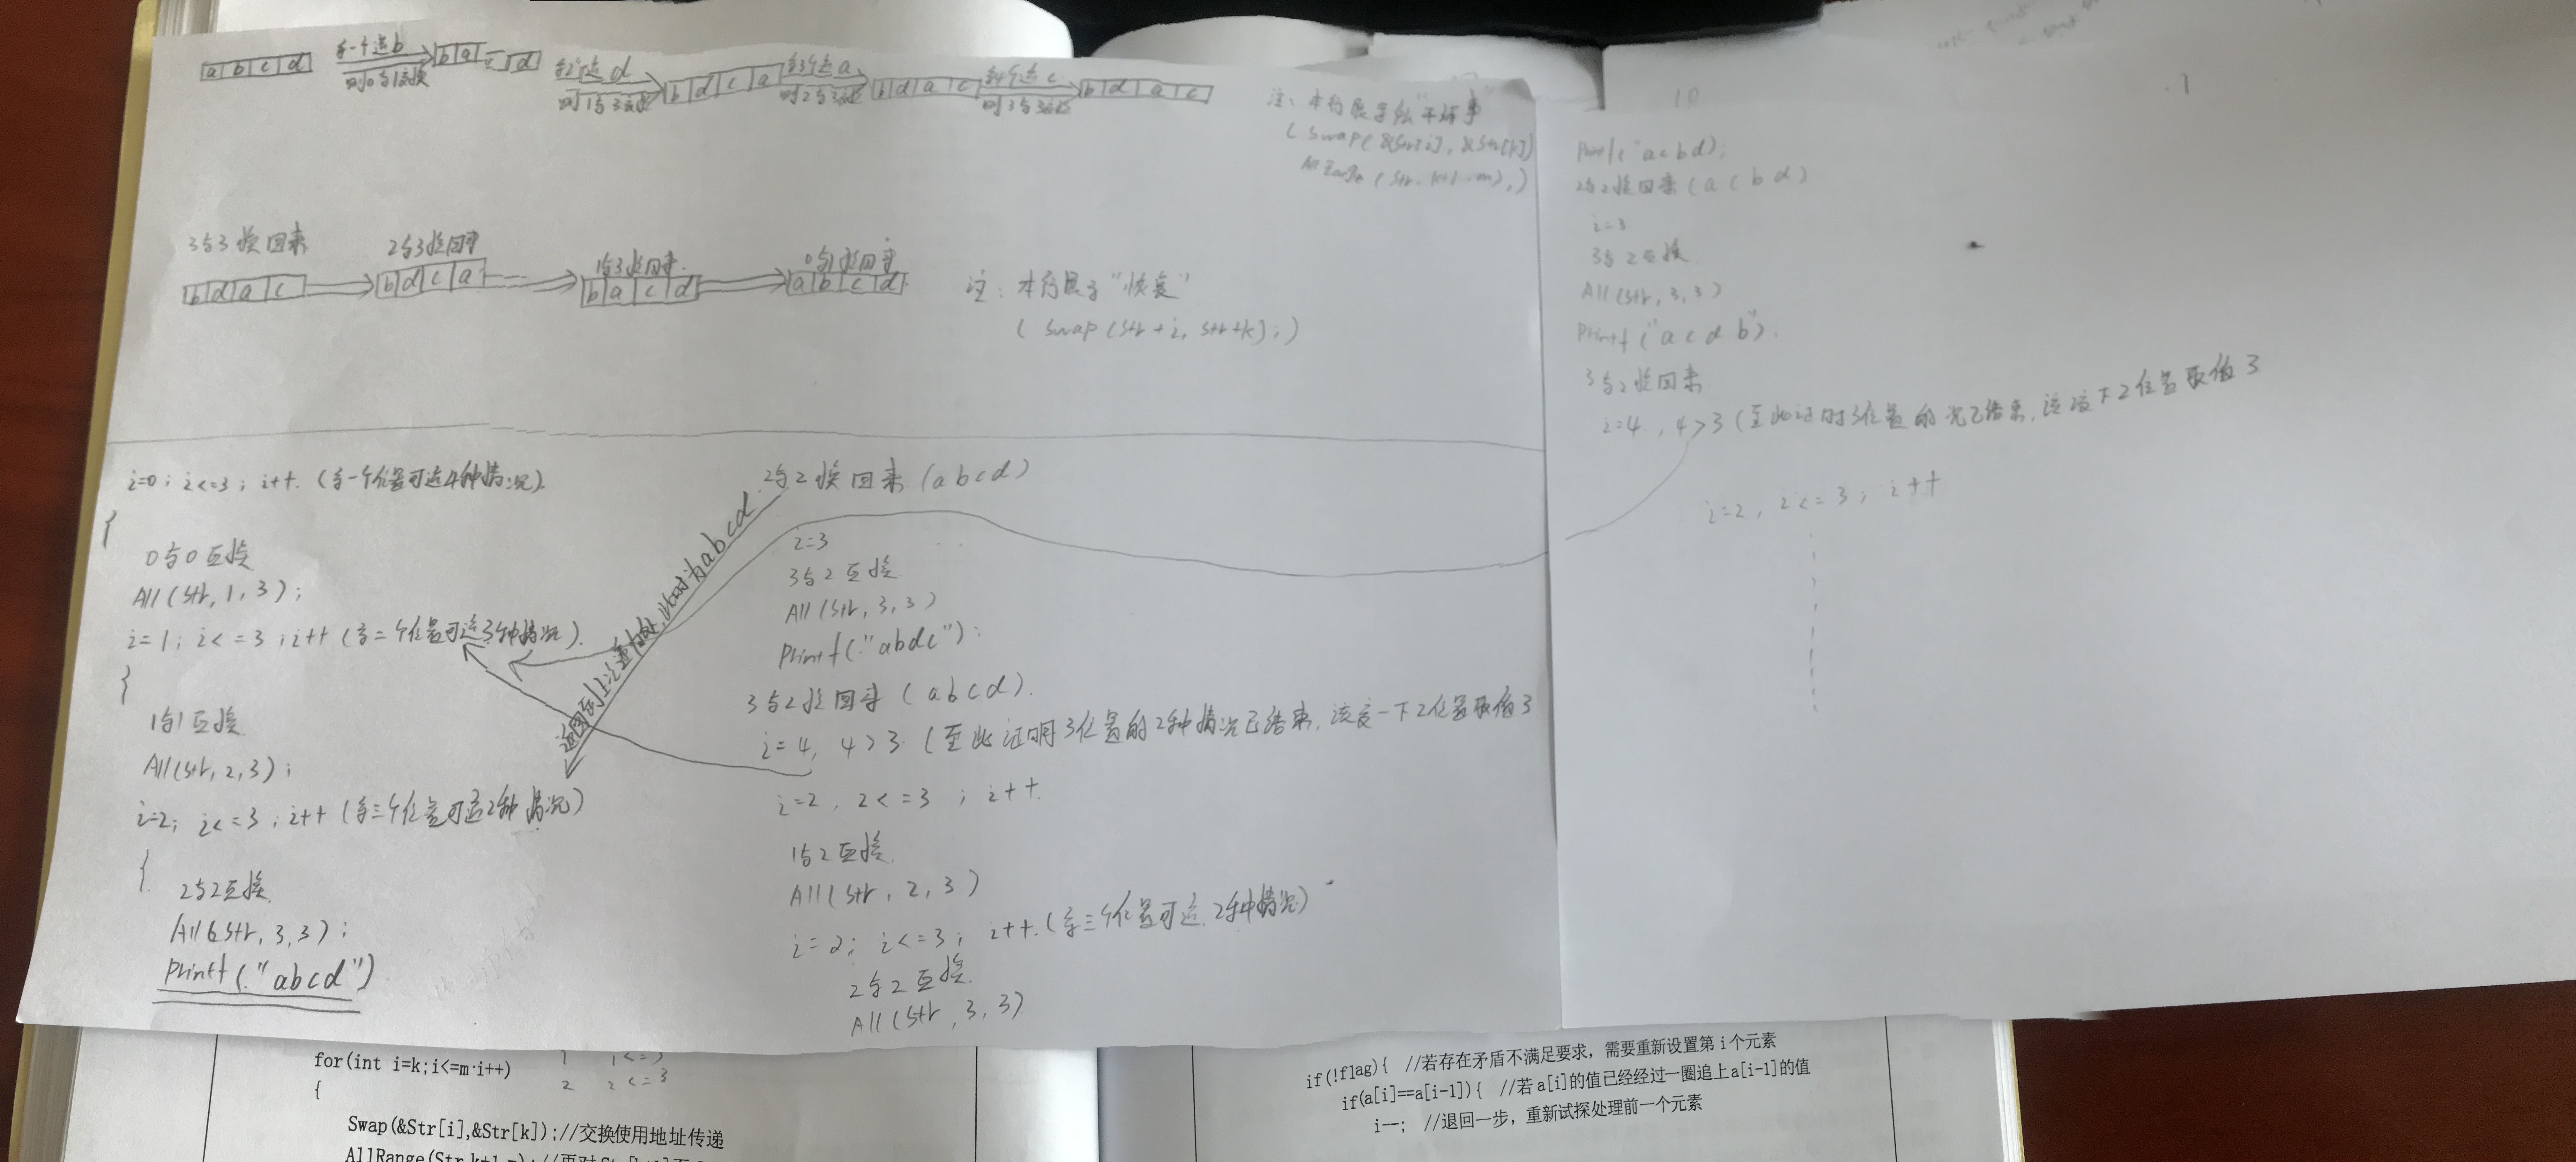 a b c d
第一个选b
则0与1互换
b a c d
第2个选d
则1与3互换
b d c a
第3个选a
则2与3互换
b d a c
第4个选c
则3与3互换
b d a c
注：本行展示
(Swap(&Str[i],&Str[k])
(Str,k+1,m);)
3与3换回来
2与3换回来
1与3换回来
0与1换回来
b d a c
b d c a
b a c d
a b c d
注：本行展示“恢复”
(Swap(Str+i,Str+k);)
i=0；i<=3；i++.(第一个位置可选4种情况).
{
0与0互换
All(Str,1,3)；
i=1；i<=3；i++(第二个位置可选3种情况).
{
1与1互换
All(Str,2,3)；
i=2；i<=3；i++(第三个位置可选2种情况)
{
2与2互换
All(Str,3,3)；
Printf("abcd")
此时为abcd
2与2换回来(abcd)
i=3
3与2互换
All(Str,3,3)
Printf("abdc")；
3与2换回来(abcd).
i=4, 4>3.(至此证明3位置的2种情况已结束,该变一下2位置取值3
i=2, 2<=3；i++.
1与2互换
All(Str,2,3)
i=2；i<=3；i++.(第三个位置可选2种情况)
2与2互换
All(Str,3,3)
10
Printf("acbd);
2与2换回来(acbd)
i=3
3与2互换
All(Str,3,3)
Printf("acdb").
3与2换回来
i=4, 4>3(至此证明3位置的 已结束,该变下2位置取值3
i=2, 2<=3；i++
for(int i=k;i<=m;i++)
{
Swap(&Str[i],&Str[k]);//交换使用地址传递
1 1<=3
2 2<=3
if(!flag){ //若存在矛盾不满足要求，需要重新设置第i个元素
if(a[i]==a[i-1]){ //若a[i]的值已经经过一圈追上a[i-1]的值
i--; //退回一步，重新试探处理前一个元素